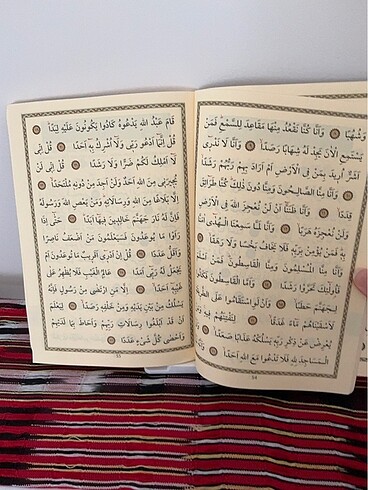 وَشُهُبًا وَأَنَّا كُنَّا نَقْعُدُ مِنْهَا مَقَاعِدَ لِلسَّمْعِ فَمَنْ
يَسْتَمِعِ الْاٰنَ يَجِدْ لَهُ شِهَابًا رَصَدًا وَأَنَّا لَا نَدْرِى
أَشَرٌّ اُرِيدَ بِمَنْ فِى الْاَرْضِ اَمْ اَرَادَ بِهِمْ رَبُّهُمْ رَشَدًا
وَأَنَّا مِنَّا الصَّالِحُونَ وَمِنَّا دُونَ ذٰلِكَ كُنَّا طَرَائِقَ
قِدَدًا وَأَنَّا ظَنَنَّا اَنْ لَنْ نُعْجِزَ اللهَ فِى الْاَرْضِ
وَلَنْ نُعْجِزَهُ هَرَبًا وَأَنَّا لَمَّا سَمِعْنَا الْهُدٰى اٰمَنَّا
بِهِ فَمَنْ يُؤْمِنْ بِرَبِّهِ فَلَا يَخَافُ بَخْسًا وَلَا رَهَقًا
وَأَنَّا مِنَّا الْمُسْلِمُونَ وَمِنَّا الْقَاسِطُونَ فَمَنْ اَسْلَمَ
فَاُولٰئِكَ تَحَرَّوْا رَشَدًا وَأَمَّا الْقَاسِطُونَ فَكَانُوا
لِجَهَنَّمَ حَطَبًا وَأَنْ لَوِ اسْتَقَامُوا عَلَى الطَّرِيقَةِ
لَاَسْقَيْنَاهُمْ مَاءً غَدَقًا لِنَفْتِنَهُمْ فِيهِ وَمَنْ
يُعْرِضْ عَنْ ذِكْرِ رَبِّهِ يَسْلُكْهُ عَذَابًا صَعَدًا وَأَنَّ
الْمَسَاجِدَ لِلّٰهِ فَلَا تَدْعُوا مَعَ اللهِ اَحَدًا وَأَنَّهُ لَمَّا
54
قَامَ عَبْدُ اللهِ يَدْعُوهُ كَادُوا يَكُونُونَ عَلَيْهِ لِبَدًا
قُلْ اِنَّمَا اَدْعُو رَبِّى وَلَا اُشْرِكُ بِهِ اَحَدًا قُلْ اِنِّى
لَا اَمْلِكُ لَكُمْ ضَرًّا وَلَا رَشَدًا قُلْ اِنِّى لَنْ
يُجِيرَنِى مِنَ اللهِ اَحَدٌ وَلَنْ اَجِدَ مِنْ دُونِهِ مُلْتَحَدًا
اِلَّا بَلَاغًا مِنَ اللهِ وَرِسَالَاتِهِ وَمَنْ يَعْصِ اللهَ وَرَسُولَهُ
فَاِنَّ لَهُ نَارَ جَهَنَّمَ خَالِدِينَ فِيهَا اَبَدًا حَتّٰى اِذَا
رَاَوْا مَا يُوعَدُونَ فَسَيَعْلَمُونَ مَنْ اَضْعَفُ نَاصِرًا
وَاَقَلُّ عَدَدًا قُلْ اِنْ اَدْرِى اَقَرِيبٌ مَا تُوعَدُونَ اَمْ
يَجْعَلُ لَهُ رَبِّى اَمَدًا عَالِمُ الْغَيْبِ فَلَا يُظْهِرُ عَلٰى
غَيْبِهِ اَحَدًا اِلَّا مَنِ ارْتَضٰى مِنْ رَسُولٍ فَاِنَّهُ
يَسْلُكُ مِنْ بَيْنِ يَدَيْهِ وَمِنْ خَلْفِهِ رَصَدًا لِيَعْلَمَ
اَنْ قَدْ اَبْلَغُوا رِسَالَاتِ رَبِّهِمْ وَاَحَاطَ بِمَا لَدَيْهِمْ
وَاَحْصٰى كُلَّ شَىْءٍ عَدَدًا
55